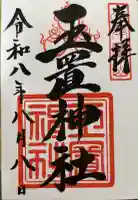 奉拝
玉置神社
令和八年八月八日